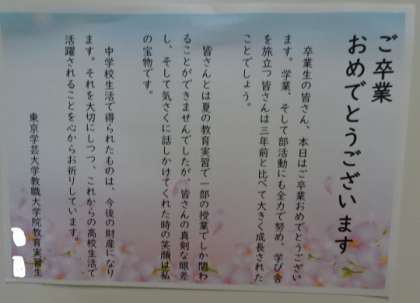 ご卒業
おめでとうございます
卒業生の皆さん、本日はご卒業おめでとうござい
ます。学業、そして部活動にも全力で努め、学び舎
を旅立つ皆さんは三年前と比べて大きく成長された
ことでしょう。
皆さんとは夏の教育実習で一部の授業でしか関わ
ることができませんでしたが、皆さんの真剣な眼差
し、そして気さくに話しかけてくれた時の笑顔は私
の宝物です。
中学校生活で得られたものは、今後の財産になり
ます。それを大切にしつつ、これからの高校生活で
活躍されることを心からお祈りしています。
東京学芸大学教職大学院教育実習生